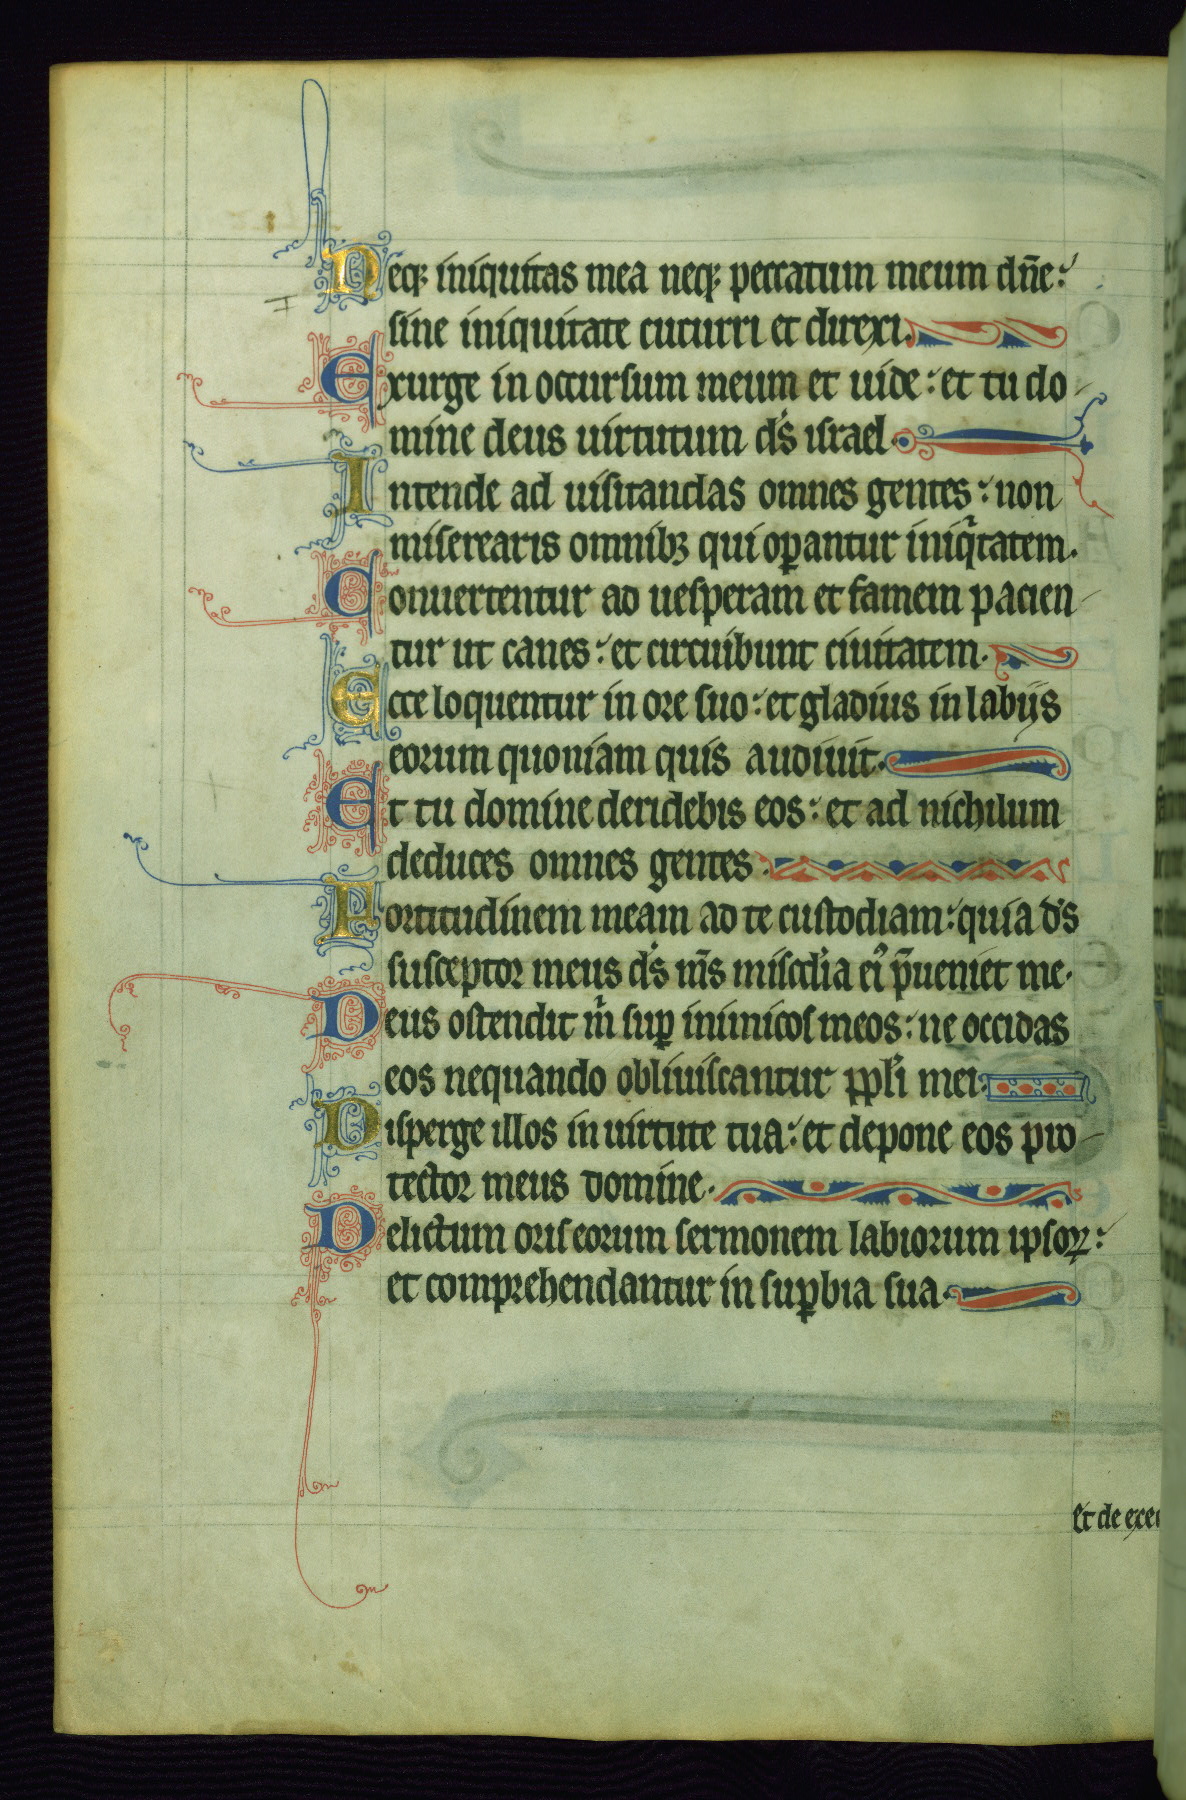 Neqꝫ iniquitas mea neqꝫ peccatum meum dn̄e:
sine iniquitate cucurri et direxi.
Exurge in occursum meum et uide: et tu do
mine deus uirtutum ds̄ israel.
Intende ad uisitandas omnes gentes: non
miserearis omnibꝫ qui oꝑantur iniq̄tatem.
Conuertentur ad uesperam et famem pacien
tur ut canes: et circuibunt ciuitatem.
Ecce loquentur in ore suo: et gladius in labijs
eorum quoniam quis audiuit.
Et tu domine deridebis eos: et ad nichilum
deduces omnes gentes.
Fortitudinem meam ad te custodiam: quia ds̄
susceptor meus ds̄ ms̄ misc̄dia ei᷒ p̄ueniet me.
Deus ostendit m̄ suꝑ inimicos meos: ne occidas
eos nequando obliuiscantur ppl̄i mei.
Disperge illos in uirtute tua: et depone eos pro
tector meus domine.
Delictum oris eorum sermonem labiorum ipsoꝝ:
et comprehendantur in suꝑbia sua.
Et de exec